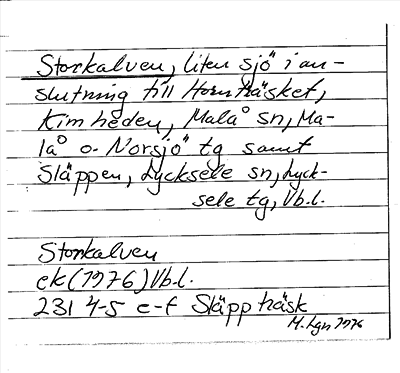 Storkalven, liten sjö i an-
slutning till Hornträsket,
Kimheden, Malå sn, Ma-
lå o. Norsjö tg samt
Släppen, Lycksele sn, Lyck-
sele tg, Vb.l.
Storkalven
ek (1976) Vb.l.
231 4-5 e-f Släppträsk
M. Lgn 1976